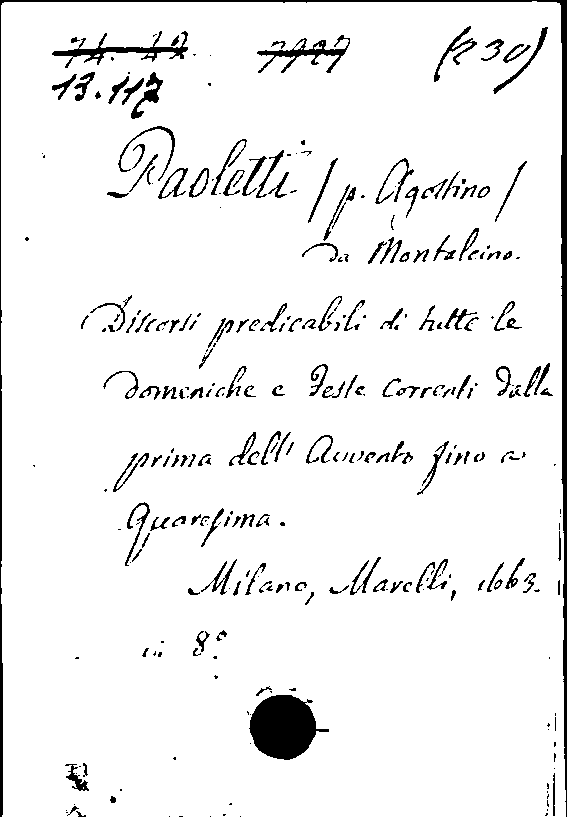 74. 42 7927 (230)
13.117
Paoletti / p. Agostino /
da Montalcino.
Discorsi predicabili di tutte le
domeniche e Feste correnti dalla
prima dell' Avvento fino a
Quaresima.
Milano, Marelli, 1663.
in 8º